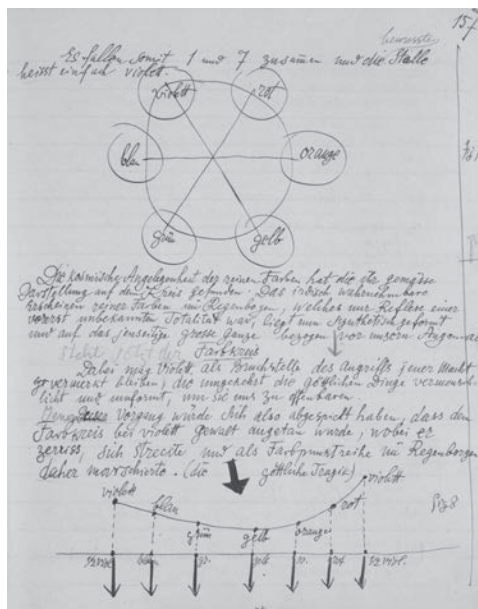 157
bewusste
Es fallen somit 1 und 7 zusammen und die Stelle
heisst einfach violett.
violett rot
blau orange
grün gelb
Die kosmische Angelegenheit der reinen Farben hat die ihr gemässe
Darstellung auf dem Kreis gefunden. Das irdisch wahrnehmbare
Erscheinen reiner Farben im Regenbogen, welches nur Reflex einer
vorerst unbekannten Totalität war, liegt nun synthetisch geformt
und auf das jenseitige grosse Ganze bezogen vor unsern Augen
steht jetzt der Farbkreis
Dabei mag violett, als Bruchstelle des Angriffs jener Macht
vermerkt bleiben, die umgekehrt die göttlichen Dinge vermensch-
licht und umformt, um sie uns zu offenbaren.
Dieser Vorgang würde sich also abgespielt haben, dass dem
Farbkreis bei violett Gewalt angetan wurde, wobei er
zerriss, sich streckte und als Farbpunktreihe im Regenbogen
daher marschierte. (die göttliche Tragik)
violett blau grün gelb orange rot violett
Fig 8
½ viol. blau gr. gelb or. rot ½ viol.